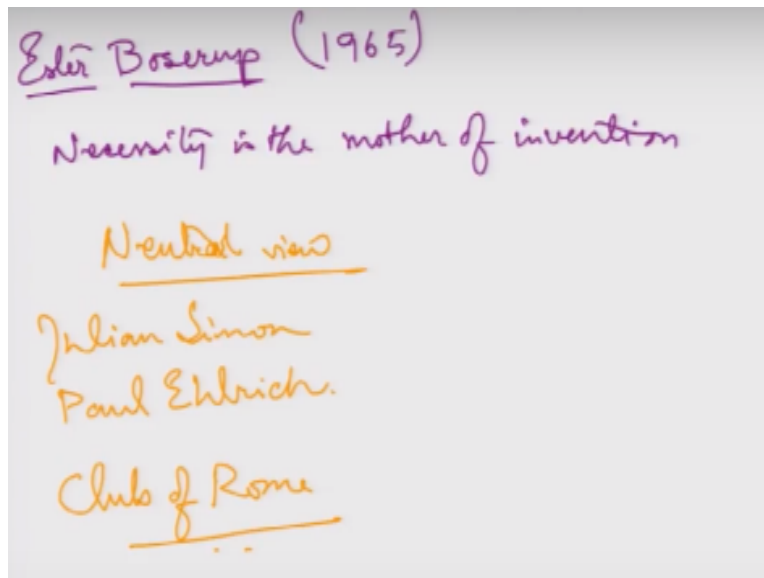 Ester Boserup (1965)
Necessity is the mother of invention
Neutral view
Julian Simon
Paul Ehlrich.
Club of Rome